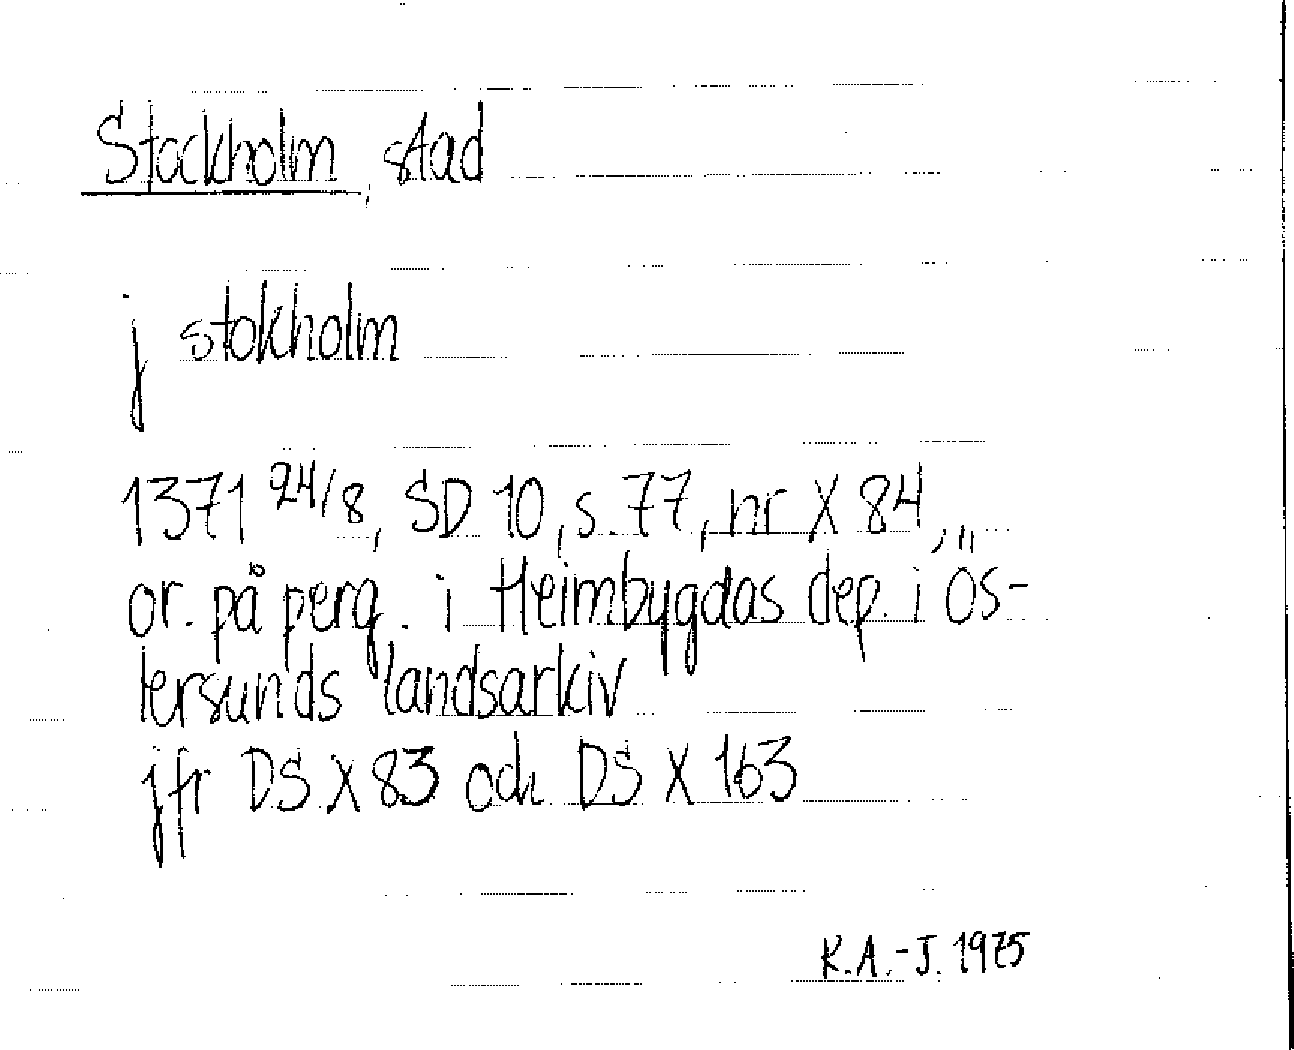 Stockholm, stad
j stokholm
1371 24/8, SD 10, s. 77, nr X 84,
or. på perg. i Heimbygdas dep. i Ös-
tersunds landsarkiv
jfr DS X 83 och DS X 163
K.A.-J. 1975